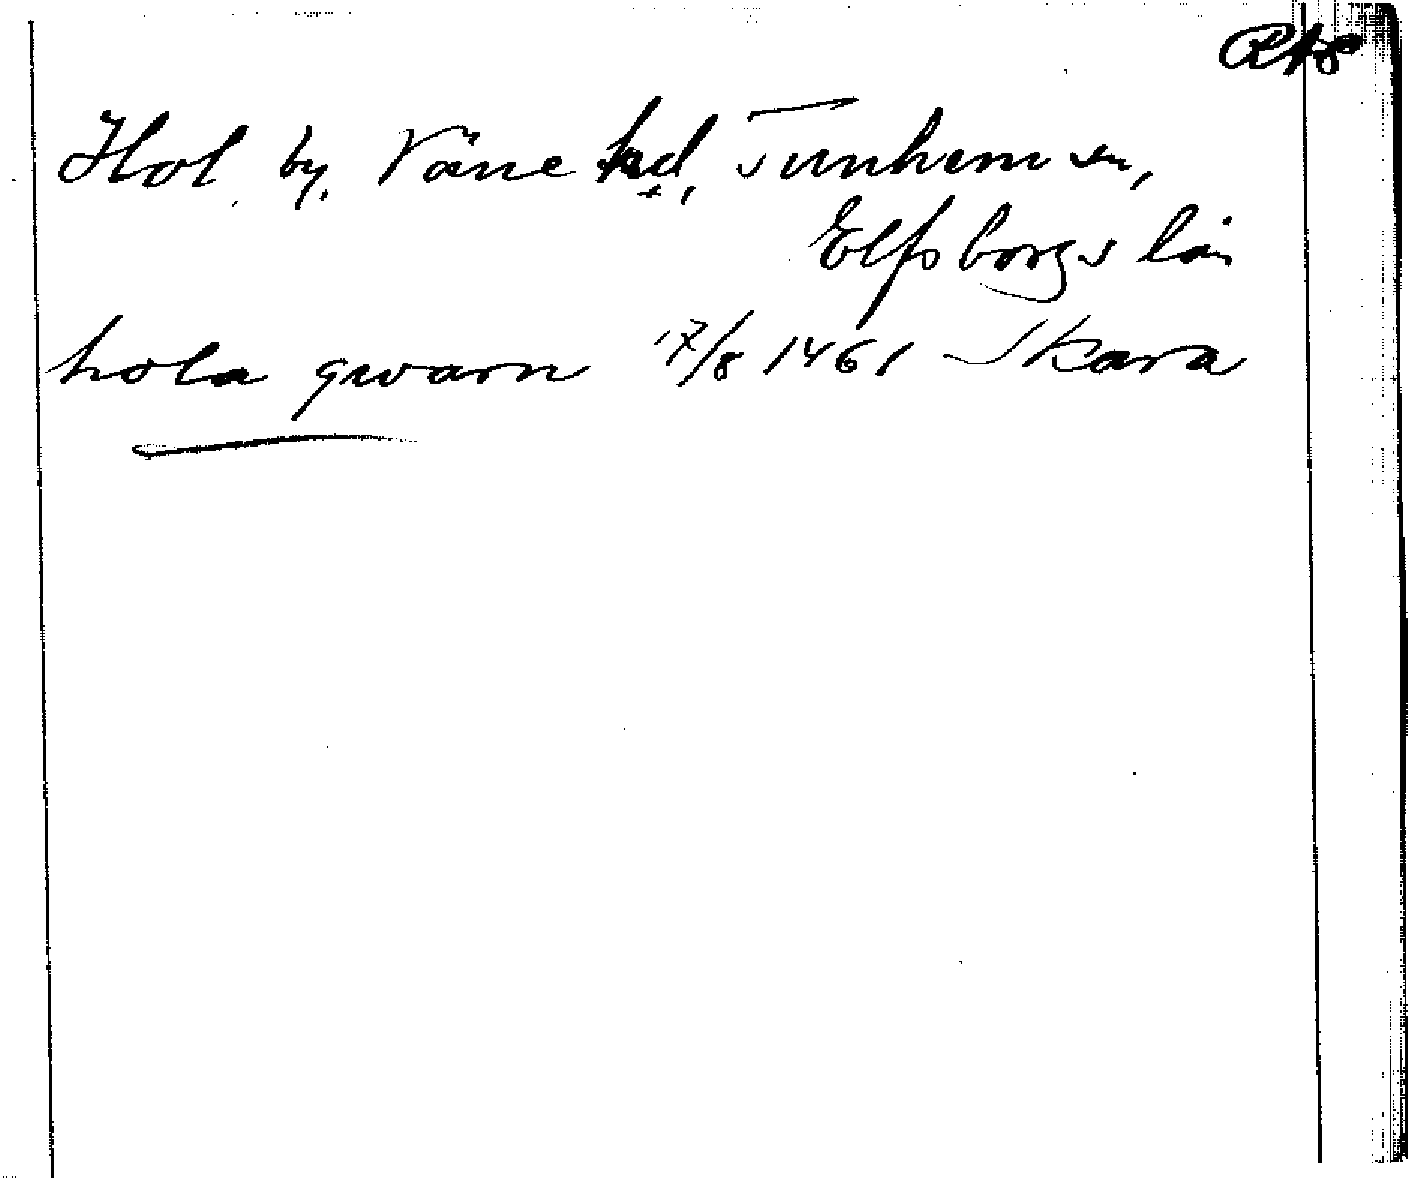 RAp
Hol, by, Väne hd, Tunhem sn,
Elfsborgs län
hola qwarn 17/8 1461 Skara